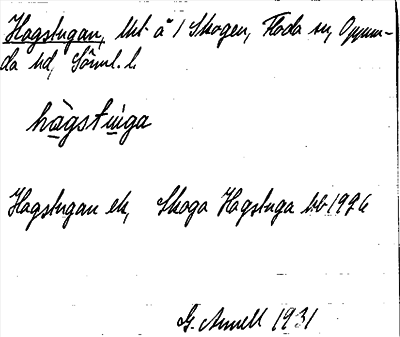 Hagstugan, lht å 1 Skogen, Floda sn, Oppun-
da hd, Sörml. l.
hagstuga
Hagstugan ek, Skoga Hagstuga kb 1926
G. Annell 1931